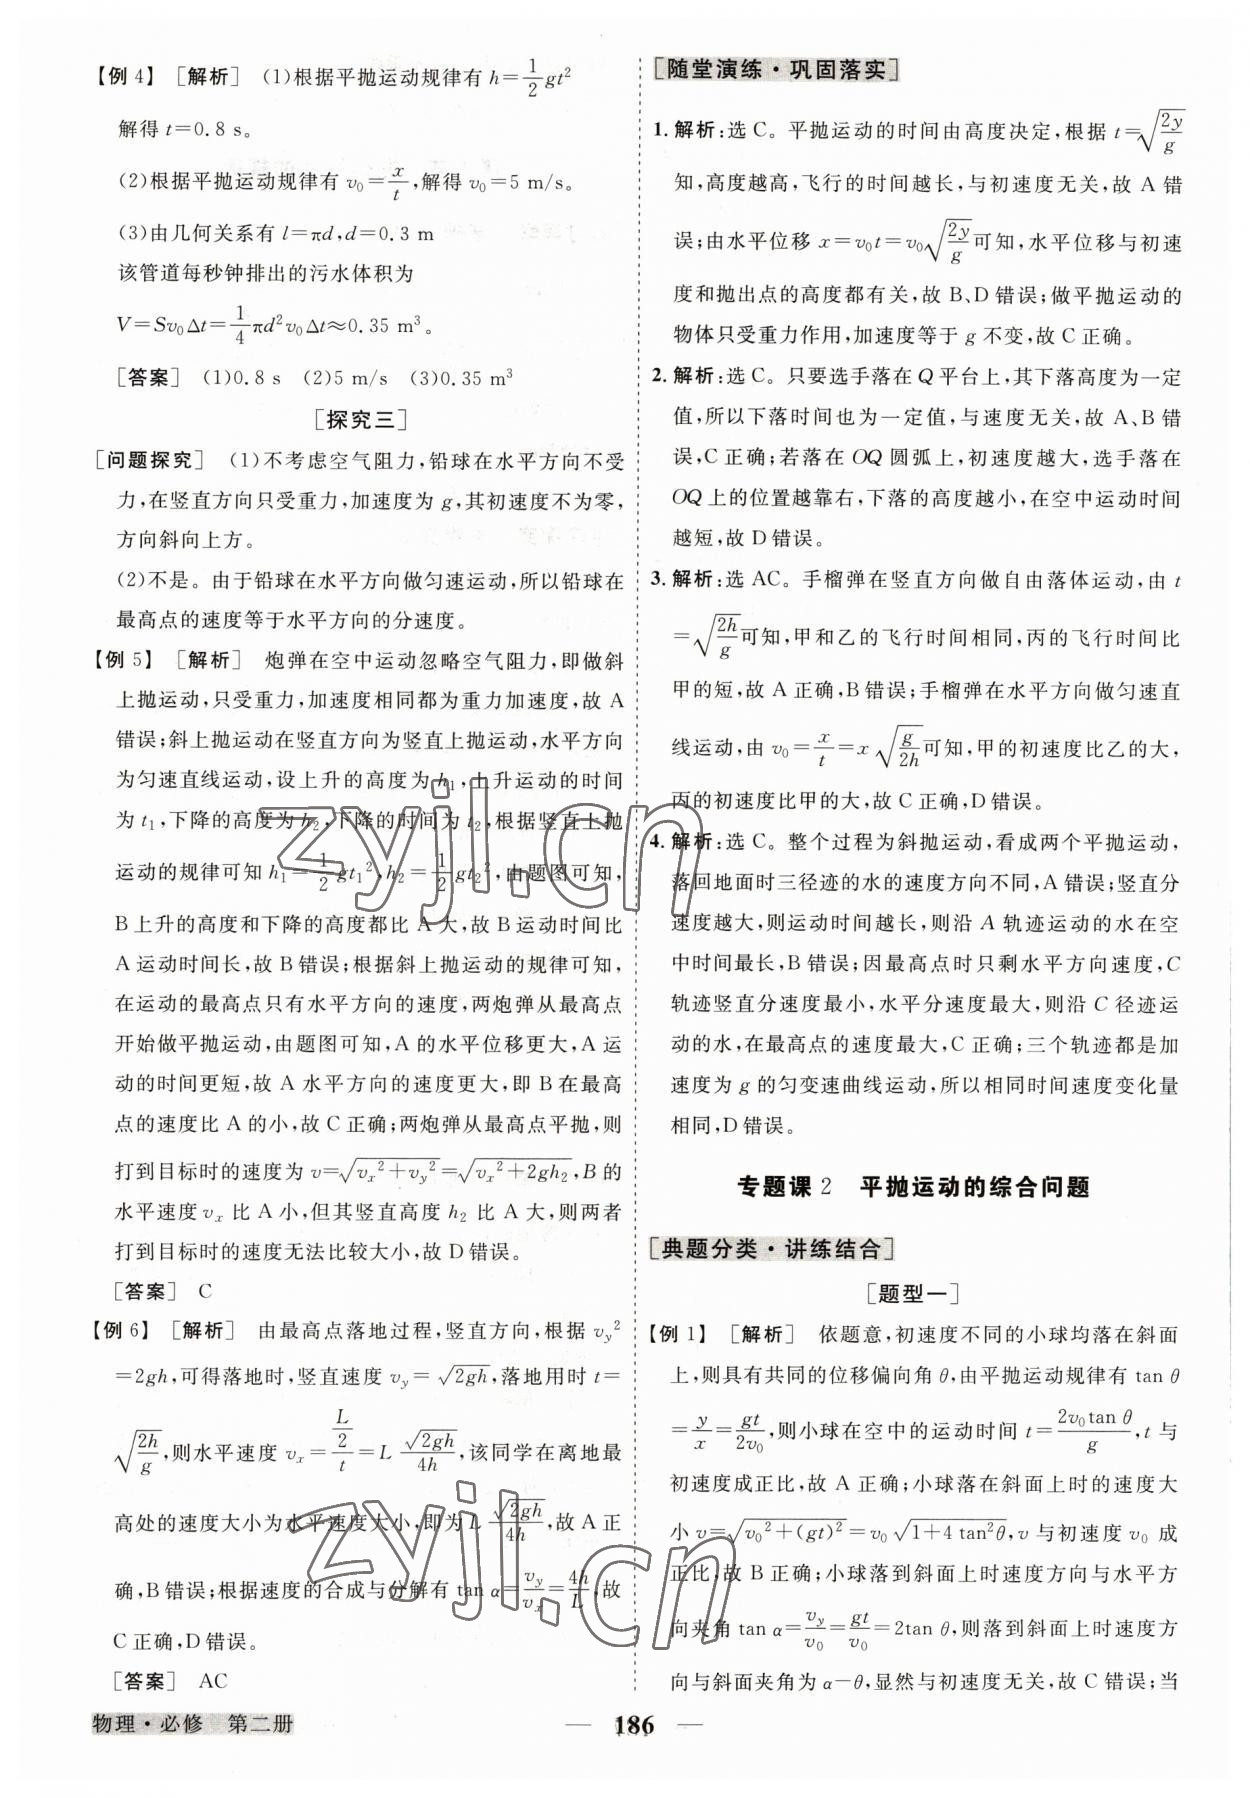 【例 4】 [解析] (1)根据平抛运动规律有 h=\frac{1}{2}gt²
解得 t=0.8 s。
(2)根据平抛运动规律有 v₀=\frac{x}{t},解得 v₀=5 m/s。
(3)由几何关系有 l=πd,d=0.3 m
该管道每秒钟排出的污水体积为
V=Sv₀Δt=\frac{1}{4}πd²v₀Δt≈0.35 m³。
[答案] (1)0.8 s (2)5 m/s (3)0.35 m³
[探究三]
[问题探究] (1)不考虑空气阻力,铅球在水平方向不受
力,在竖直方向只受重力,加速度为 g,其初速度不为零,
方向斜向上方。
(2)不是。由于铅球在水平方向做匀速运动,所以铅球在
最高点的速度等于水平方向的分速度。
【例 5】 [解析] 炮弹在空中运动忽略空气阻力,即做斜
上抛运动,只受重力,加速度相同都为重力加速度,故 A
错误;斜上抛运动在竖直方向为竖直上抛运动,水平方向
为匀速直线运动,设上升的高度为 h₁,上升运动的时间
为 t₁,下降的高度为 h₂,下降的时间为 t₂,根据竖直上抛
运动的规律可知 h₁=\frac{1}{2}gt₁²,h₂=\frac{1}{2}gt₂²,由题图可知,
B 上升的高度和下降的高度都比 A 大,故 B 运动时间比
A 运动时间长,故 B 错误;根据斜上抛运动的规律可知,
在运动的最高点只有水平方向的速度,两炮弹从最高点
开始做平抛运动,由题图可知,A 的水平位移更大,A 运
动的时间更短,故 A 水平方向的速度更大,即 B 在最高
点的速度比 A 的小,故 C 正确;两炮弹从最高点平抛,则
打到目标时的速度为 v=\sqrt{v_x²+v_y²}=\sqrt{v_x²+2gh₂},B 的
水平速度 v_x 比 A 小,但其竖直高度 h₂ 比 A 大,则两者
打到目标时的速度无法比较大小,故 D 错误。
[答案] C
【例 6】 [解析] 由最高点落地过程,竖直方向,根据 v_y²
=2gh,可得落地时,竖直速度 v_y=\sqrt{2gh},落地用时 t=
\sqrt{\frac{2h}{g}},则水平速度 v_x=\frac{\frac{L}{2}}{t}=L\frac{\sqrt{2gh}}{4h},该同学在离地最
高处的速度大小为水平速度大小,即为 L\frac{\sqrt{2gh}}{4h},故 A 正
确,B 错误;根据速度的合成与分解有 tan α=\frac{v_y}{v_x}=\frac{4h}{L},故
C 正确,D 错误。
[答案] AC
物理·必修 第二册
[随堂演练·巩固落实]
1. 解析:选 C。平抛运动的时间由高度决定,根据 t=\sqrt{\frac{2y}{g}}
知,高度越高,飞行的时间越长,与初速度无关,故 A 错
误;由水平位移 x=v₀t=v₀\sqrt{\frac{2y}{g}}可知,水平位移与初速
度和抛出点的高度都有关,故 B、D 错误;做平抛运动的
物体只受重力作用,加速度等于 g 不变,故 C 正确。
2. 解析:选 C。只要选手落在 Q 平台上,其下落高度为一定
值,所以下落时间也为一定值,与速度无关,故 A、B 错
误,C 正确;若落在 OQ 圆弧上,初速度越大,选手落在
OQ 上的位置越靠右,下落的高度越小,在空中运动时间
越短,故 D 错误。
3. 解析:选 AC。手榴弹在竖直方向做自由落体运动,由 t
=\sqrt{\frac{2h}{g}}可知,甲和乙的飞行时间相同,丙的飞行时间比
甲的短,故 A 正确,B 错误;手榴弹在水平方向做匀速直
线运动,由 v₀=\frac{x}{t}=x\sqrt{\frac{g}{2h}}可知,甲的初速度比乙的大,
丙的初速度比甲的大,故 C 正确,D 错误。
4. 解析:选 C。整个过程为斜抛运动,看成两个平抛运动,
落回地面时三径迹的水的速度方向不同,A 错误;竖直分
速度越大,则运动时间越长,则沿 A 轨迹运动的水在空
中时间最长,B 错误;因最高点时只剩水平方向速度,C
轨迹竖直分速度最小,水平分速度最大,则沿 C 径迹运
动的水,在最高点的速度最大,C 正确;三个轨迹都是加
速度为 g 的匀变速曲线运动,所以相同时间速度变化量
相同,D 错误。
专题课 2 平抛运动的综合问题
[典题分类·讲练结合]
[题型一]
【例 1】 [解析] 依题意,初速度不同的小球均落在斜面
上,则具有共同的位移偏向角 θ,由平抛运动规律有 tan θ
=\frac{y}{x}=\frac{gt}{2v₀},则小球在空中的运动时间 t=\frac{2v₀tan θ}{g},t 与
初速度成正比,故 A 正确;小球落在斜面上时的速度大
小 v=\sqrt{v₀²+(gt)²}=v₀\sqrt{1+4 tan²θ},v 与初速度 v₀ 成
正比,故 B 正确;小球落到斜面上时速度方向与水平方
向夹角 tan α=\frac{v_y}{v₀}=\frac{gt}{v₀}=2tan θ,则落到斜面上时速度方
向与斜面夹角为 α-θ,显然与初速度无关,故 C 错误;当
— 186 —
zyjl.cn
zyjl.cn